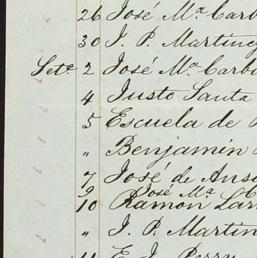 26 José Mª Carb
30 J. P. Martinez
Sete 2 José Mª Carb
4 Justo Santa
5 Escuela de
" Benjamin
7 José de Ans
9 José Mª C
10 Ramon Lar
" J. P. Martin
11 E. J. Perry